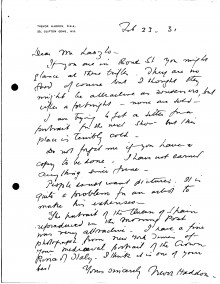 TREVOR HADDON, R.B.A.
Feb 23. 31
Dear Mr Laszlo -
If you are in Bond St you might
glance at these trifles. They are no
good of course but I thought they
might be attractive as souvenirs, but
after a fortnight - none are sold -
I am trying to get a sitter for a
portrait for the next show but this
place is terribly cold -
Do not forget me if you have a
copy to be done. I have not earned
anything since June -
People cannot want pictures. It is
quite a problem for an artist to
make his expenses -
The portrait of the Queen of Spain
reproduced in the Morning Post
was very attractive. I have a fine
photograph from New York Times of
your mediaeval portrait of the Crown
Prince of Italy. I think it is one of your
best
Yours sincerely Trevor Haddon